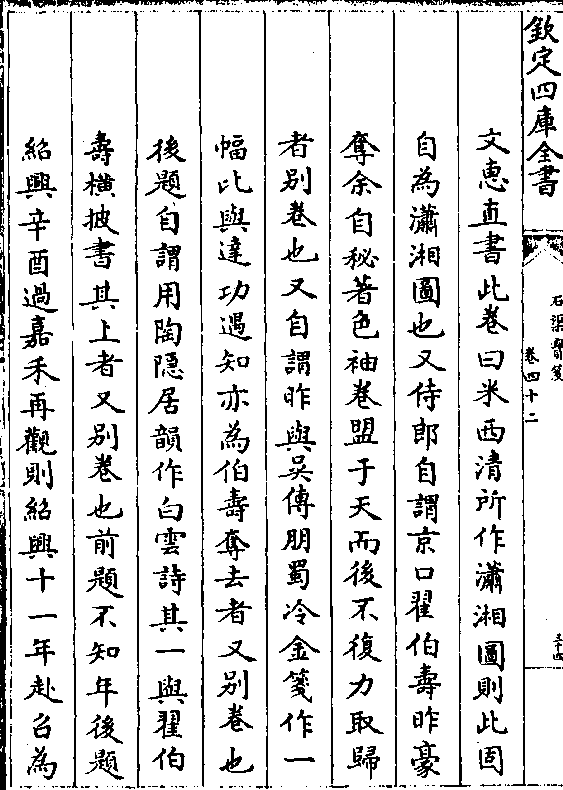 欽定四庫全書
石渠寶笈
卷四十二
三十四
文惠直書此卷曰米西清所作瀟湘圖則此固
自為瀟湘圖也又侍郎自謂京口翟伯壽昨豪
奪余自秘著色袖卷盟于天而後不復力取歸
者别卷也又自謂昨與吳傅朋蜀冷金箋作一
幅比與達功遇知亦為伯壽奪去者又别卷也
後題自謂用陶隱居韻作白雲詩其一與翟伯
壽橫披書其上者又别卷也前題不知年後題
紹興辛酉過嘉禾再觀則紹興十一年赴召為